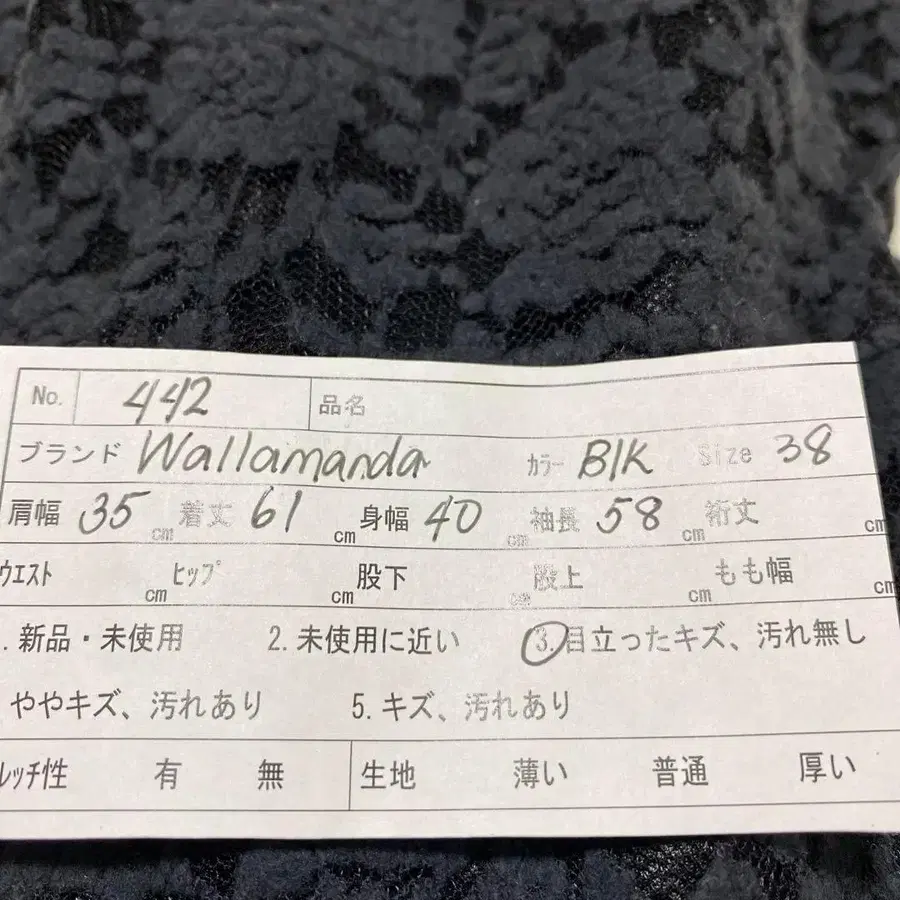 No. 442 品名
ブランド Wallamanda カラー Blk Size 38
肩幅 35 cm 着丈 61 cm 身幅 40 cm 袖長 58 cm 裄丈 cm
ウエスト cm ヒップ cm 股下 cm 股上 cm もも幅 cm
.新品・未使用 2.未使用に近い 3.目立ったキズ、汚れ無し
ややキズ、汚れあり 5.キズ、汚れあり
レッチ性 有 無 生地 薄い 普通 厚い